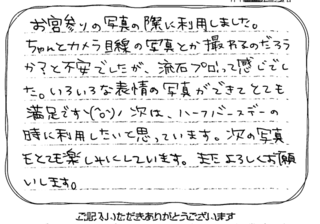 お宮参りの写真の際に利用しました。
ちゃんとカメラ目線の写真とか撮れるのだろう
か？と不安でしたが、流石プロ！って感じでし
た。いろいろな表情の写真ができてとても
満足です＼(^o^)／次は、ハーフバースデーの
時に利用したいと思っています。次の写真
もとても楽しみにしています。またよろしくお願
いします。
ご記入いただきありがとうございます